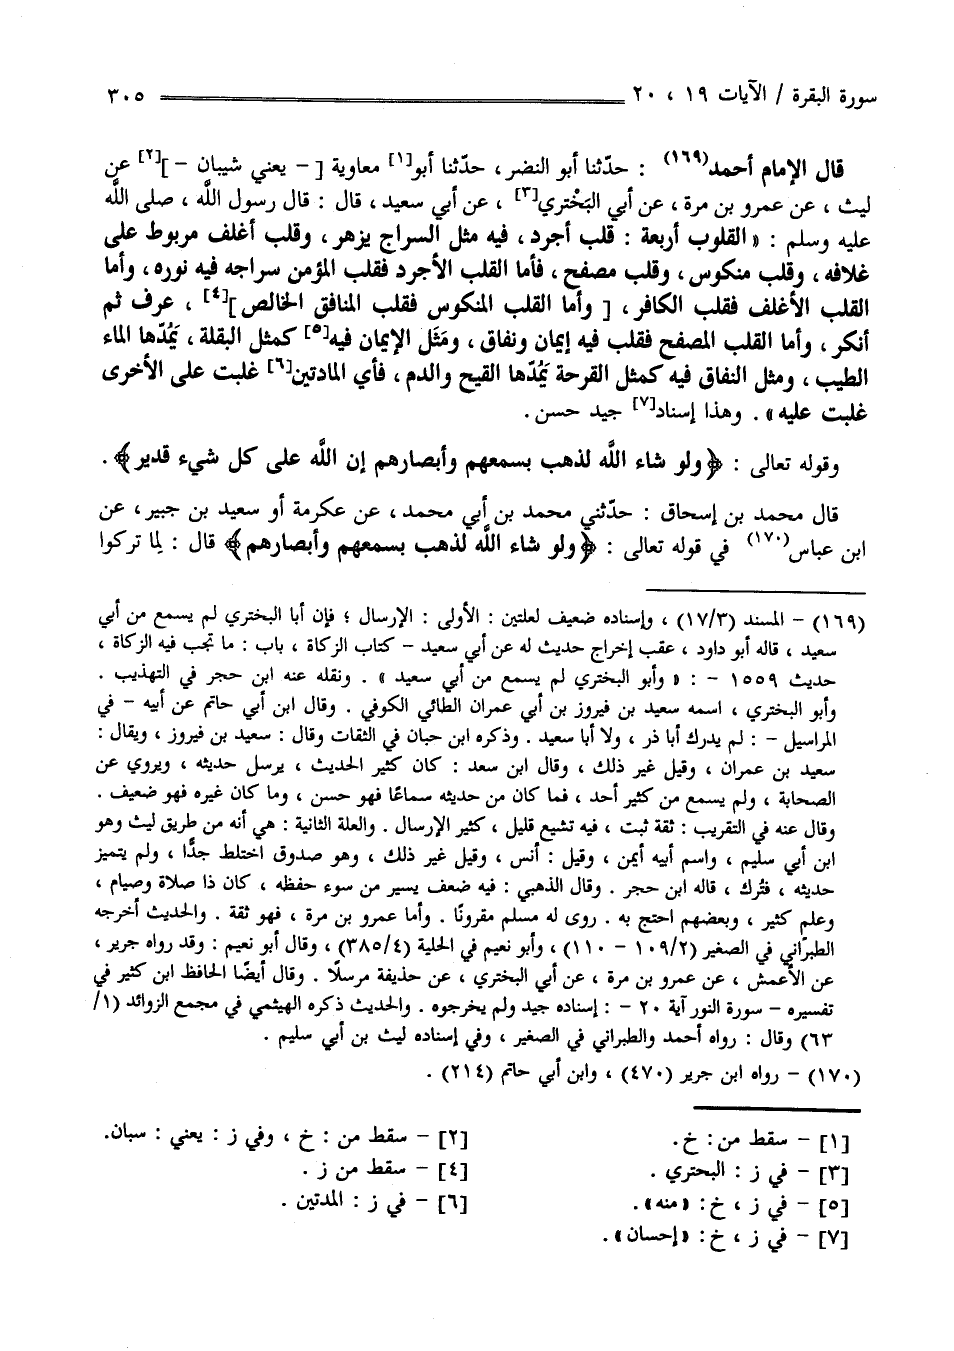 سورة البقرة / الآيات ١٩ ، ٢٠ ٣٠٥
قال الإمام أحمد(١٦٩) : حدّثنا أبو النضر ، حدّثنا أبو[١] معاوية [ – يعني شيبان – ][٢] عن
ليث ، عن عمرو بن مرة ، عن أبي البَخْتري[٣] ، عن أبي سعيد ، قال : قال رسول اللَّه ، صلى اللَّه
عليه وسلم : « القلوب أربعة : قلب أجرد ، فيه مثل السراج يزهر ، وقلب أغلف مربوط على
غلافه ، وقلب منكوس ، وقلب مصفح ، فأما القلب الأجرد فقلب المؤمن سراجه فيه نوره ، وأما
القلب الأغلف فقلب الكافر ، [ وأما القلب المنكوس فقلب المنافق الخالص ][٤] ، عرف ثم
أنكر ، وأما القلب المصفح فقلب فيه إيمان ونفاق ، ومَثَل الإيمان فيه[٥] كمثل البقلة ، يَمُدّها الماء
الطيب ، ومثل النفاق فيه كمثل القرحة يَمُدّها القيح والدم ، فأي المادتين[٦] غلبت على الأخرى
غلبت عليه » . وهذا إسناد[٧] جيد حسن .
وقوله تعالى : ﴿ولو شاء اللَّه لذهب بسمعهم وأبصارهم إن اللَّه على كل شيء قدير﴾ .
قال محمد بن إسحاق : حدّثني محمد بن أبي محمد ، عن عكرمة أو سعيد بن جبير ، عن
ابن عباس(١٧٠) في قوله تعالى : ﴿ولو شاء اللَّه لذهب بسمعهم وأبصارهم﴾ قال : لِما تركوا
(١٦٩) – المسند (١٧/٣) ، وإسناده ضعيف لعلتين : الأولى : الإرسال ؛ فإن أبا البختري لم يسمع من أبي
سعيد ، قاله أبو داود ، عقب إخراج حديث له عن أبي سعيد – كتاب الزكاة ، باب : ما تجب فيه الزكاة ،
حديث ١٥٥٩ – : « وأبو البختري لم يسمع من أبي سعيد » . ونقله عنه ابن حجر في التهذيب .
وأبو البختري ، اسمه سعيد بن فيروز بن أبي عمران الطائي الكوفي . وقال ابن أبي حاتم عن أبيه – في
المراسيل – : لم يدرك أبا ذر ، ولا أبا سعيد . وذكره ابن حبان في الثقات وقال : سعيد بن فيروز ، ويقال :
سعيد بن عمران ، وقيل غير ذلك ، وقال ابن سعد : كان كثير الحديث ، يرسل حديثه ، ويروي عن
الصحابة ، ولم يسمع من كثير أحد ، فما كان من حديثه سماعًا فهو حسن ، وما كان غيره فهو ضعيف .
وقال عنه في التقريب : ثقة ثبت ، فيه تشيع قليل ، كثير الإرسال . والعلة الثانية : هي أنه من طريق ليث وهو
ابن أبي سليم ، واسم أبيه أيمن ، وقيل : أنس ، وقيل غير ذلك ، وهو صدوق اختلط جدًّا ، ولم يتميز
حديثه ، فتُرك ، قاله ابن حجر . وقال الذهبي : فيه ضعف يسير من سوء حفظه ، كان ذا صلاة وصيام ،
وعلم كثير ، وبعضهم احتج به . روى له مسلم مقرونًا . وأما عمرو بن مرة ، فهو ثقة . والحديث أخرجه
الطبراني في الصغير (١٠٩/٢ – ١١٠) ، وأبو نعيم في الحلية (٣٨٥/٤) ، وقال أبو نعيم : وقد رواه جرير ،
عن الأعمش ، عن عمرو بن مرة ، عن أبي البختري ، عن حذيفة مرسلًا . وقال أيضًا الحافظ ابن كثير في
تفسيره – سورة النور آية ٢٠ – : إسناده جيد ولم يخرجوه . والحديث ذكره الهيثمي في مجمع الزوائد (١/
٦٣) وقال : رواه أحمد والطبراني في الصغير ، وفي إسناده ليث بن أبي سليم .
(١٧٠) – رواه ابن جرير (٤٧٠) ، وابن أبي حاتم (٢١٤) .
[١] – سقط من : خ . [٢] – سقط من : خ ، وفي ز : يعني : سبان.
[٣] – في ز : البحتري . [٤] – سقط من ز .
[٥] – في ز ، خ : «منه» . [٦] – في ز : المدتين .
[٧] – في ز ، خ : «إحسان» .